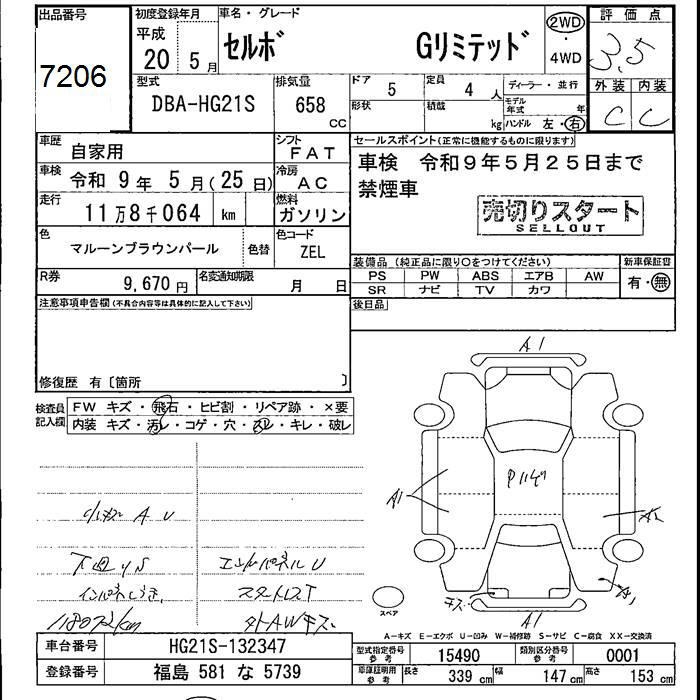 出品番号
7206
初度登録年月
平成
20 5月
車名・グレード
セルボ Gリミテッド
2WD
4WD
評価点
3.5
外装 内装
C C
型式
DBA-HG21S
排気量
658
CC
ドア 5
定員 4 人
形状
積載
kg
ディーラー・並行
モデル年式 年
ハンドル 左・右
車歴 自家用
シフト FAT
車検 令和 9年 5月(25日)
冷房 AC
走行 11万8千064 km
燃料 ガソリン
色 マルーンブラウンパール
色替
色コード ZEL
R券 9,670円
名変通知期限 月 日
セールスポイント(正常に機能するものに限ります)
車検 令和9年5月25日まで
禁煙車
売切りスタート
SELLOUT
装備品(純正品に限り○をつけてください)
PS PW ABS エアB AW
SR ナビ TV カワ
新車保証書
有・無
後日品
注意事項申告欄(不具合内容等は具体的に記入して下さい)
修復歴 有〔箇所 〕
検査員記入欄
FW キズ・飛石・ヒビ割・リペア跡・×要
内装 キズ・汚レ・コゲ・穴・スレ・キレ・破レ
A U
下回りS
118072km
A1
A1
A1
A1
スペア
A-キズ E-エクボ U-凹み W-補修跡 S-サビ C-腐食 XX-交換済
車台番号 HG21S-132347
登録番号 福島 581 な 5739
型式指定番号 参考 15490
類別区分番号 参考 0001
車庫証明用 参考 長さ 339 cm 幅 147 cm 高さ 153 cm